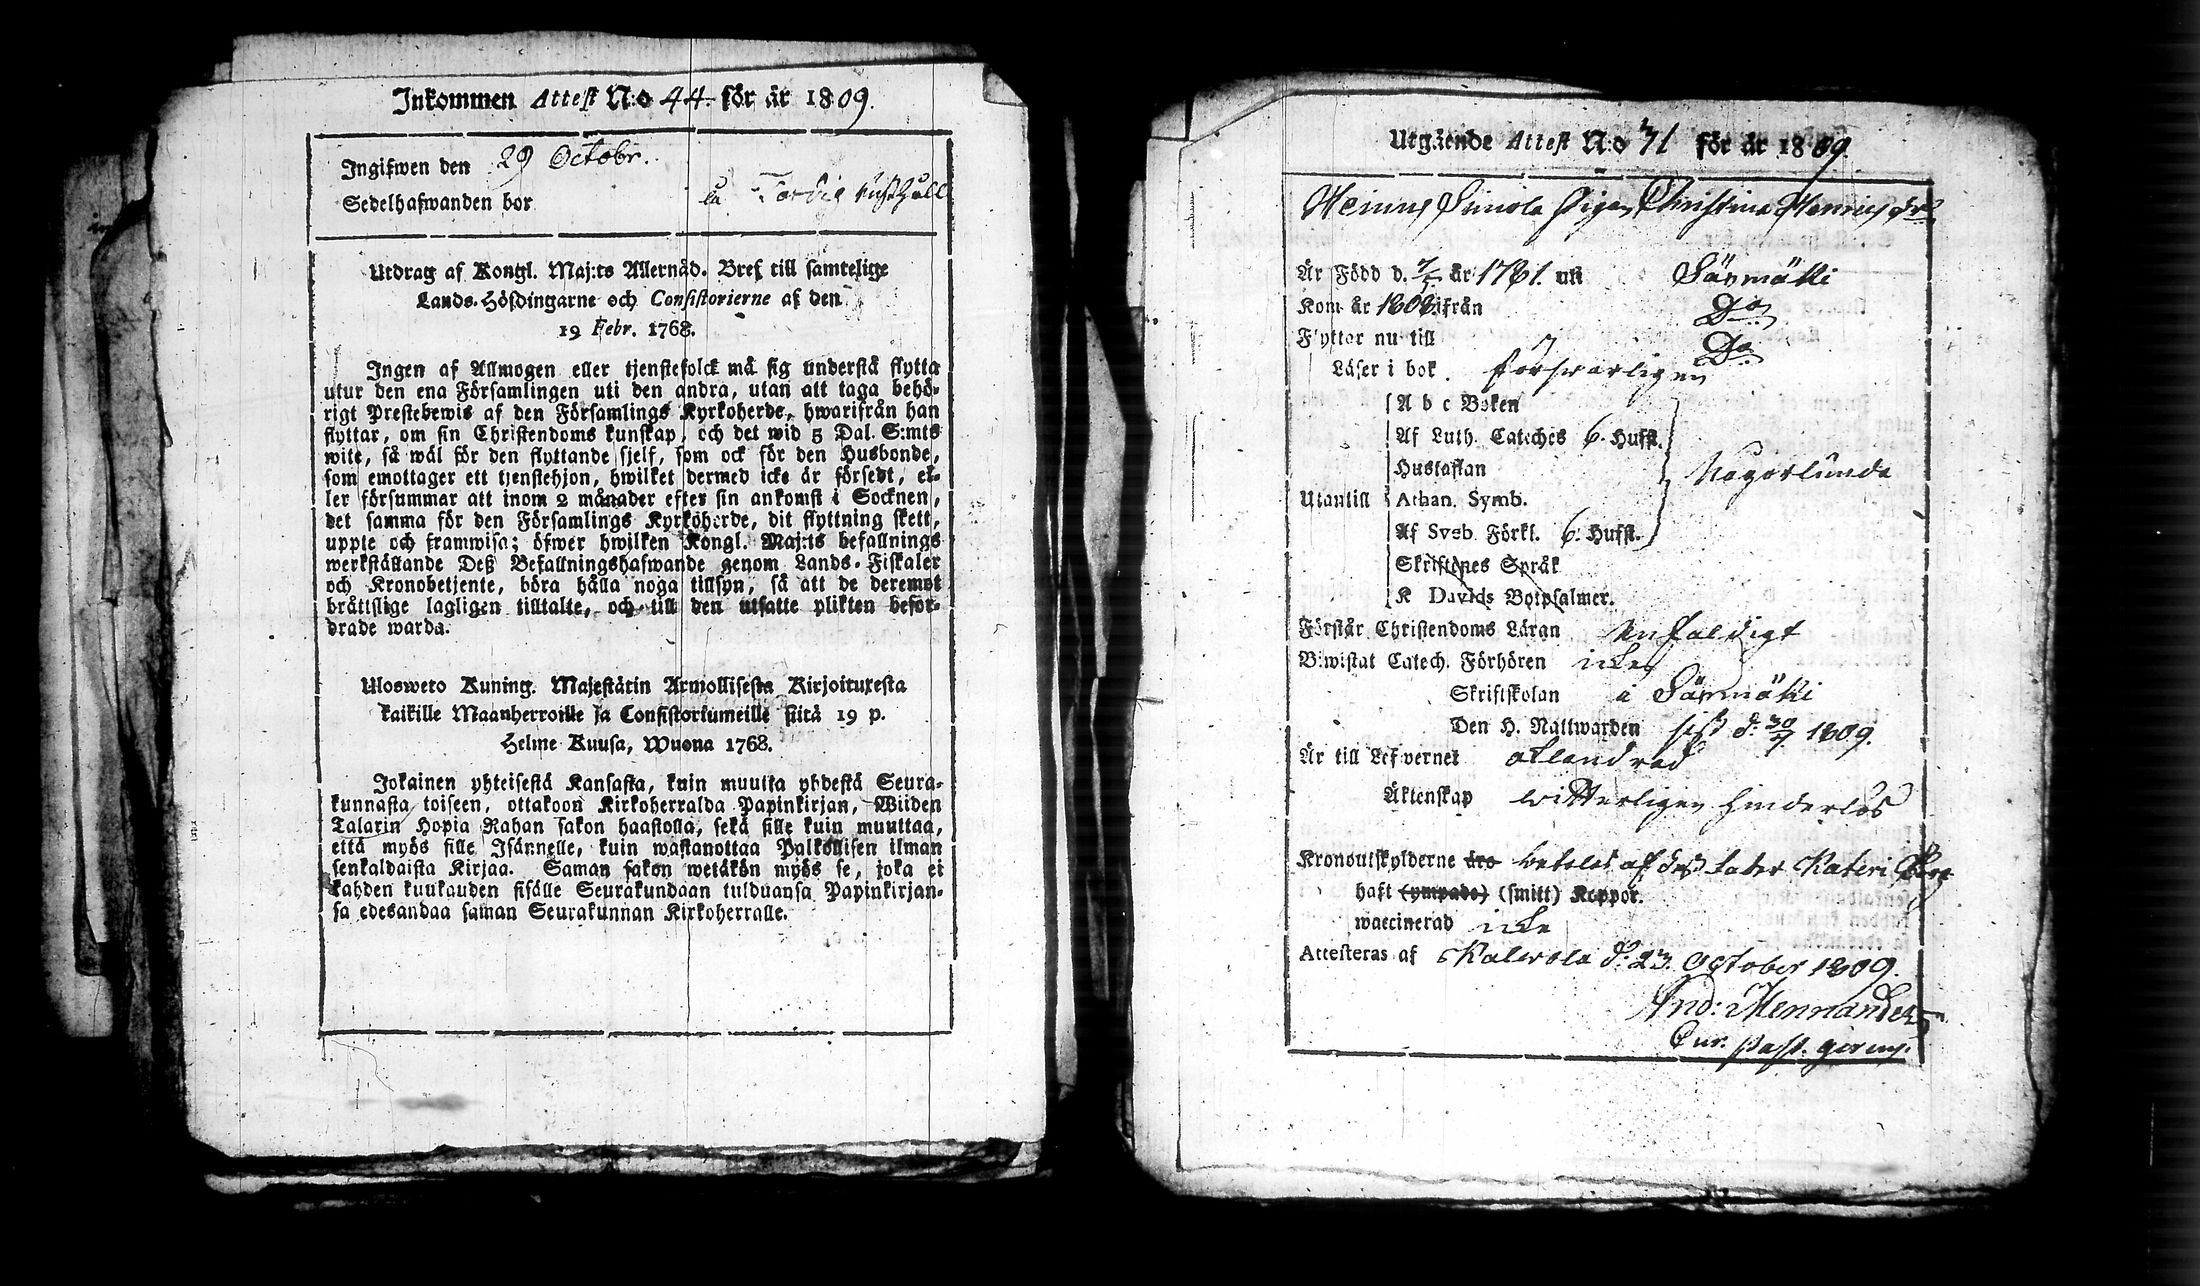 Inkommen Attest N:o 44. för år 1809.
Ingifwen den 29 Octobr.
Sedelhafwanden bor
Utdrag af Kongl. Maj:ts Allernåd. Bref till samtelige
Lands-Höfdingarne och Consistorierne af den
19 Febr. 1768.
Ingen af Allmogen eller tjenstefolck må sig understå flytta
utur den ena Församlingen uti den andra, utan att taga behö-
rigt Prestebewis af den Församlings Kyrkoherde, hwarifrån han
flyttar, om sin Christendoms kunskap, och det wid 5 Dal. S:mts
wite, så wäl för den flyttande sjelf, som ock för den Husbonde,
som emottager ett tjenstehjon, hwilket dermed icke är försedt, el-
ler försummar att inom 2 månader efter sin ankomst i Socknen,
det samma för den Församlings Kyrkoherde, dit flyttning skett,
uppte och framwisa; öfwer hwilken Kongl. Maj:ts befallnings
werkställande Deß Befallningshafwande genom Lands-Fiskaler
och Kronobetjente, böra hålla noga tillsyn, så att de deremot
bråttslige lagligen tilltalte, och till den utsatte plikten befor-
drade warda.
Ulosweto Kuning. Majestätin Armollisesta Kirjoituxesta
kaikille Maanherroille ja Consistoriumeille siitä 19 p.
Helme Kuusa, Wuona 1768.
Jokainen yhteisestä Kansasta, kuin muutta yhdestä Seura-
kunnasta toiseen, ottakoon Kirkoherralda Papinkirjan, Wiiden
Talarin Hopia Rahan sakon haastolla, sekä sille kuin muuttaa,
että myös sille Isännelle, kuin wastanottaa Palkollisen ilman
senkaldaista Kirjaa. Saman sakon wetäkön myös se, joka ei
kahden kuukauden sisälle Seurakundaan tulduansa Papinkirjan-
sa edesandaa saman Seurakunnan Kirkoherralle.
Utgående Attest N:o 71 för år 1809.
Simola Pigan Christina Henricsdr
Är Född d. år 1781. uti Säxmäki
Kom år 1808. ifrån Do
Flyttar nu till Do
Läser i bok försvarligen
A b c Boken
Af Luth. Cateches 6. Hufst.
Hustaflan
Utantill Athan. Symb.
Af Sveb. Förkl. 6. Hufst.
Skriftenes Språk
K Davids Botpsalmer.
Förstår Christendoms Läran enfaldigt
Biwistat Catech. Förhören icke
Skriftskolan i Säxmäki
Den H. Nattwarden sist d. 30/7 1809.
Är till Lefvernet oklandrad
Äktenskap witterligen hinderlös
Kronoutskylderne äro betalat af deß
haft (ympade) (smitt) Koppor.
waccinerad icke
Attesteras af Kalwola d. 23. October 1809.
And: Mennander
Cur. past. gerens.